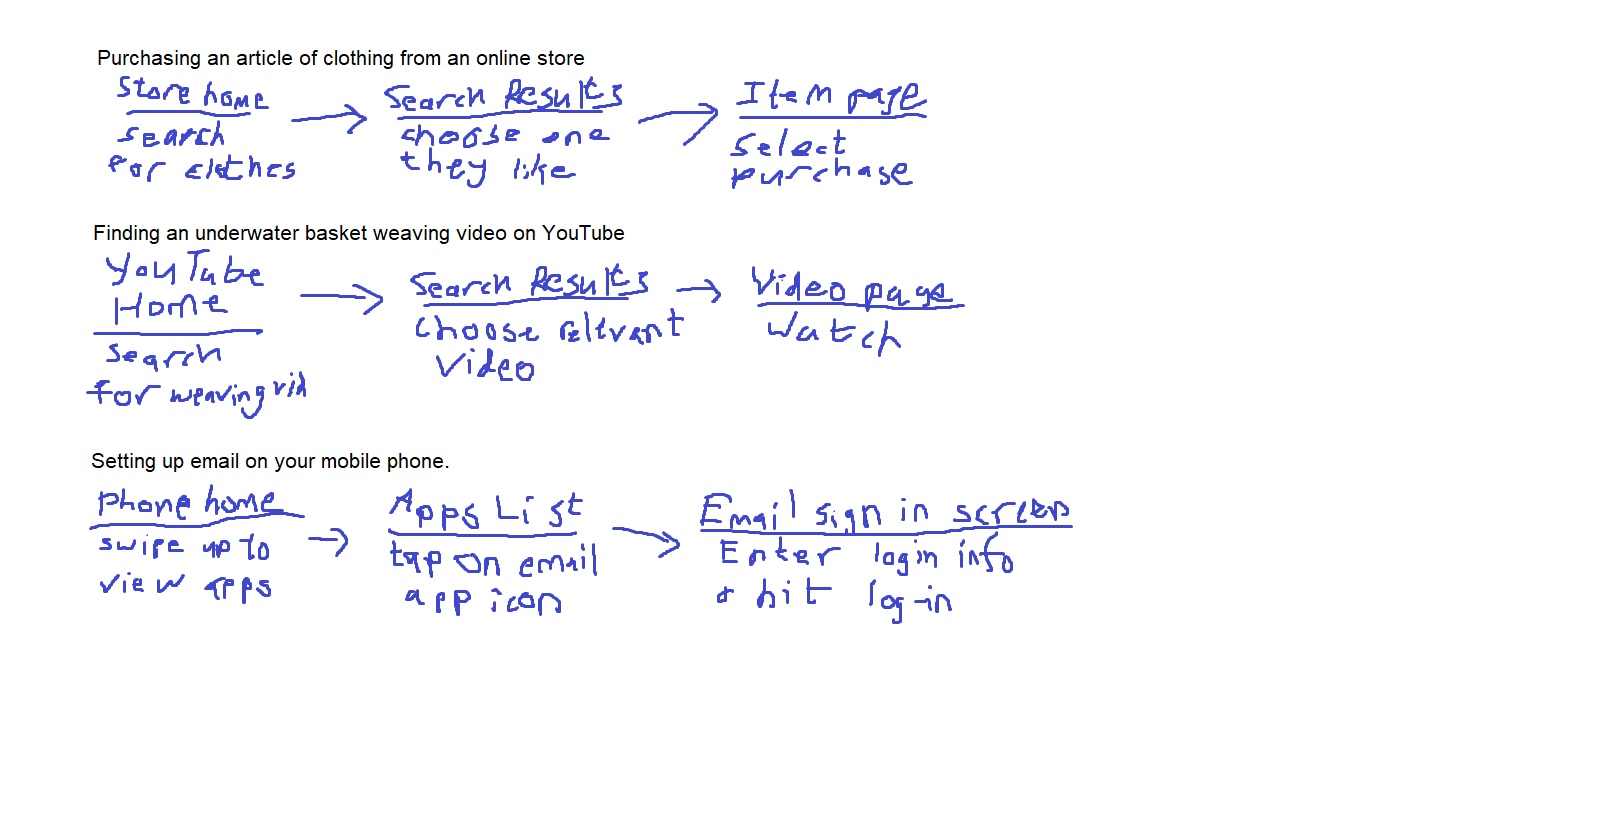 Purchasing an article of clothing from an online store
Store home
search
for clothes
Search Results
choose one
they like
Item page
Select
purchase
Finding an underwater basket weaving video on YouTube
YouTube
Home
Search
for weaving vid
Search Results
choose relevant
Video
Video page
Watch
Setting up email on your mobile phone.
Phone home
swipe up to
view apps
Apps List
tap on email
app icon
Email sign in screen
Enter login info
& hit log-in